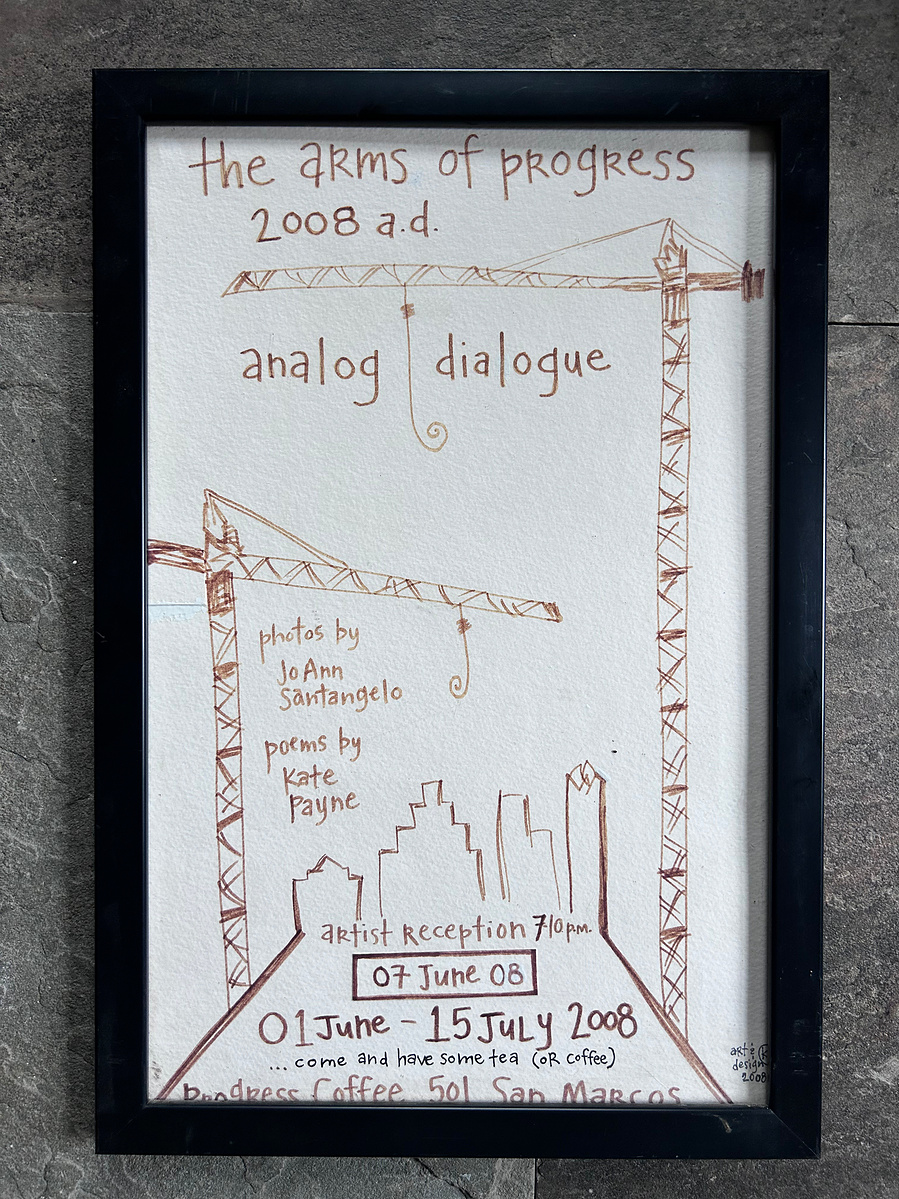 the arms of progress
2008 a.d.
analog dialogue
photos by
JoAnn
Santangelo
poems by
Kate
Payne
artist reception 7-10 p.m.
07 June 08
01 June - 15 July 2008
...come and have some tea (or coffee)
art &
design
2008
Progress Coffee 501 San Marcos